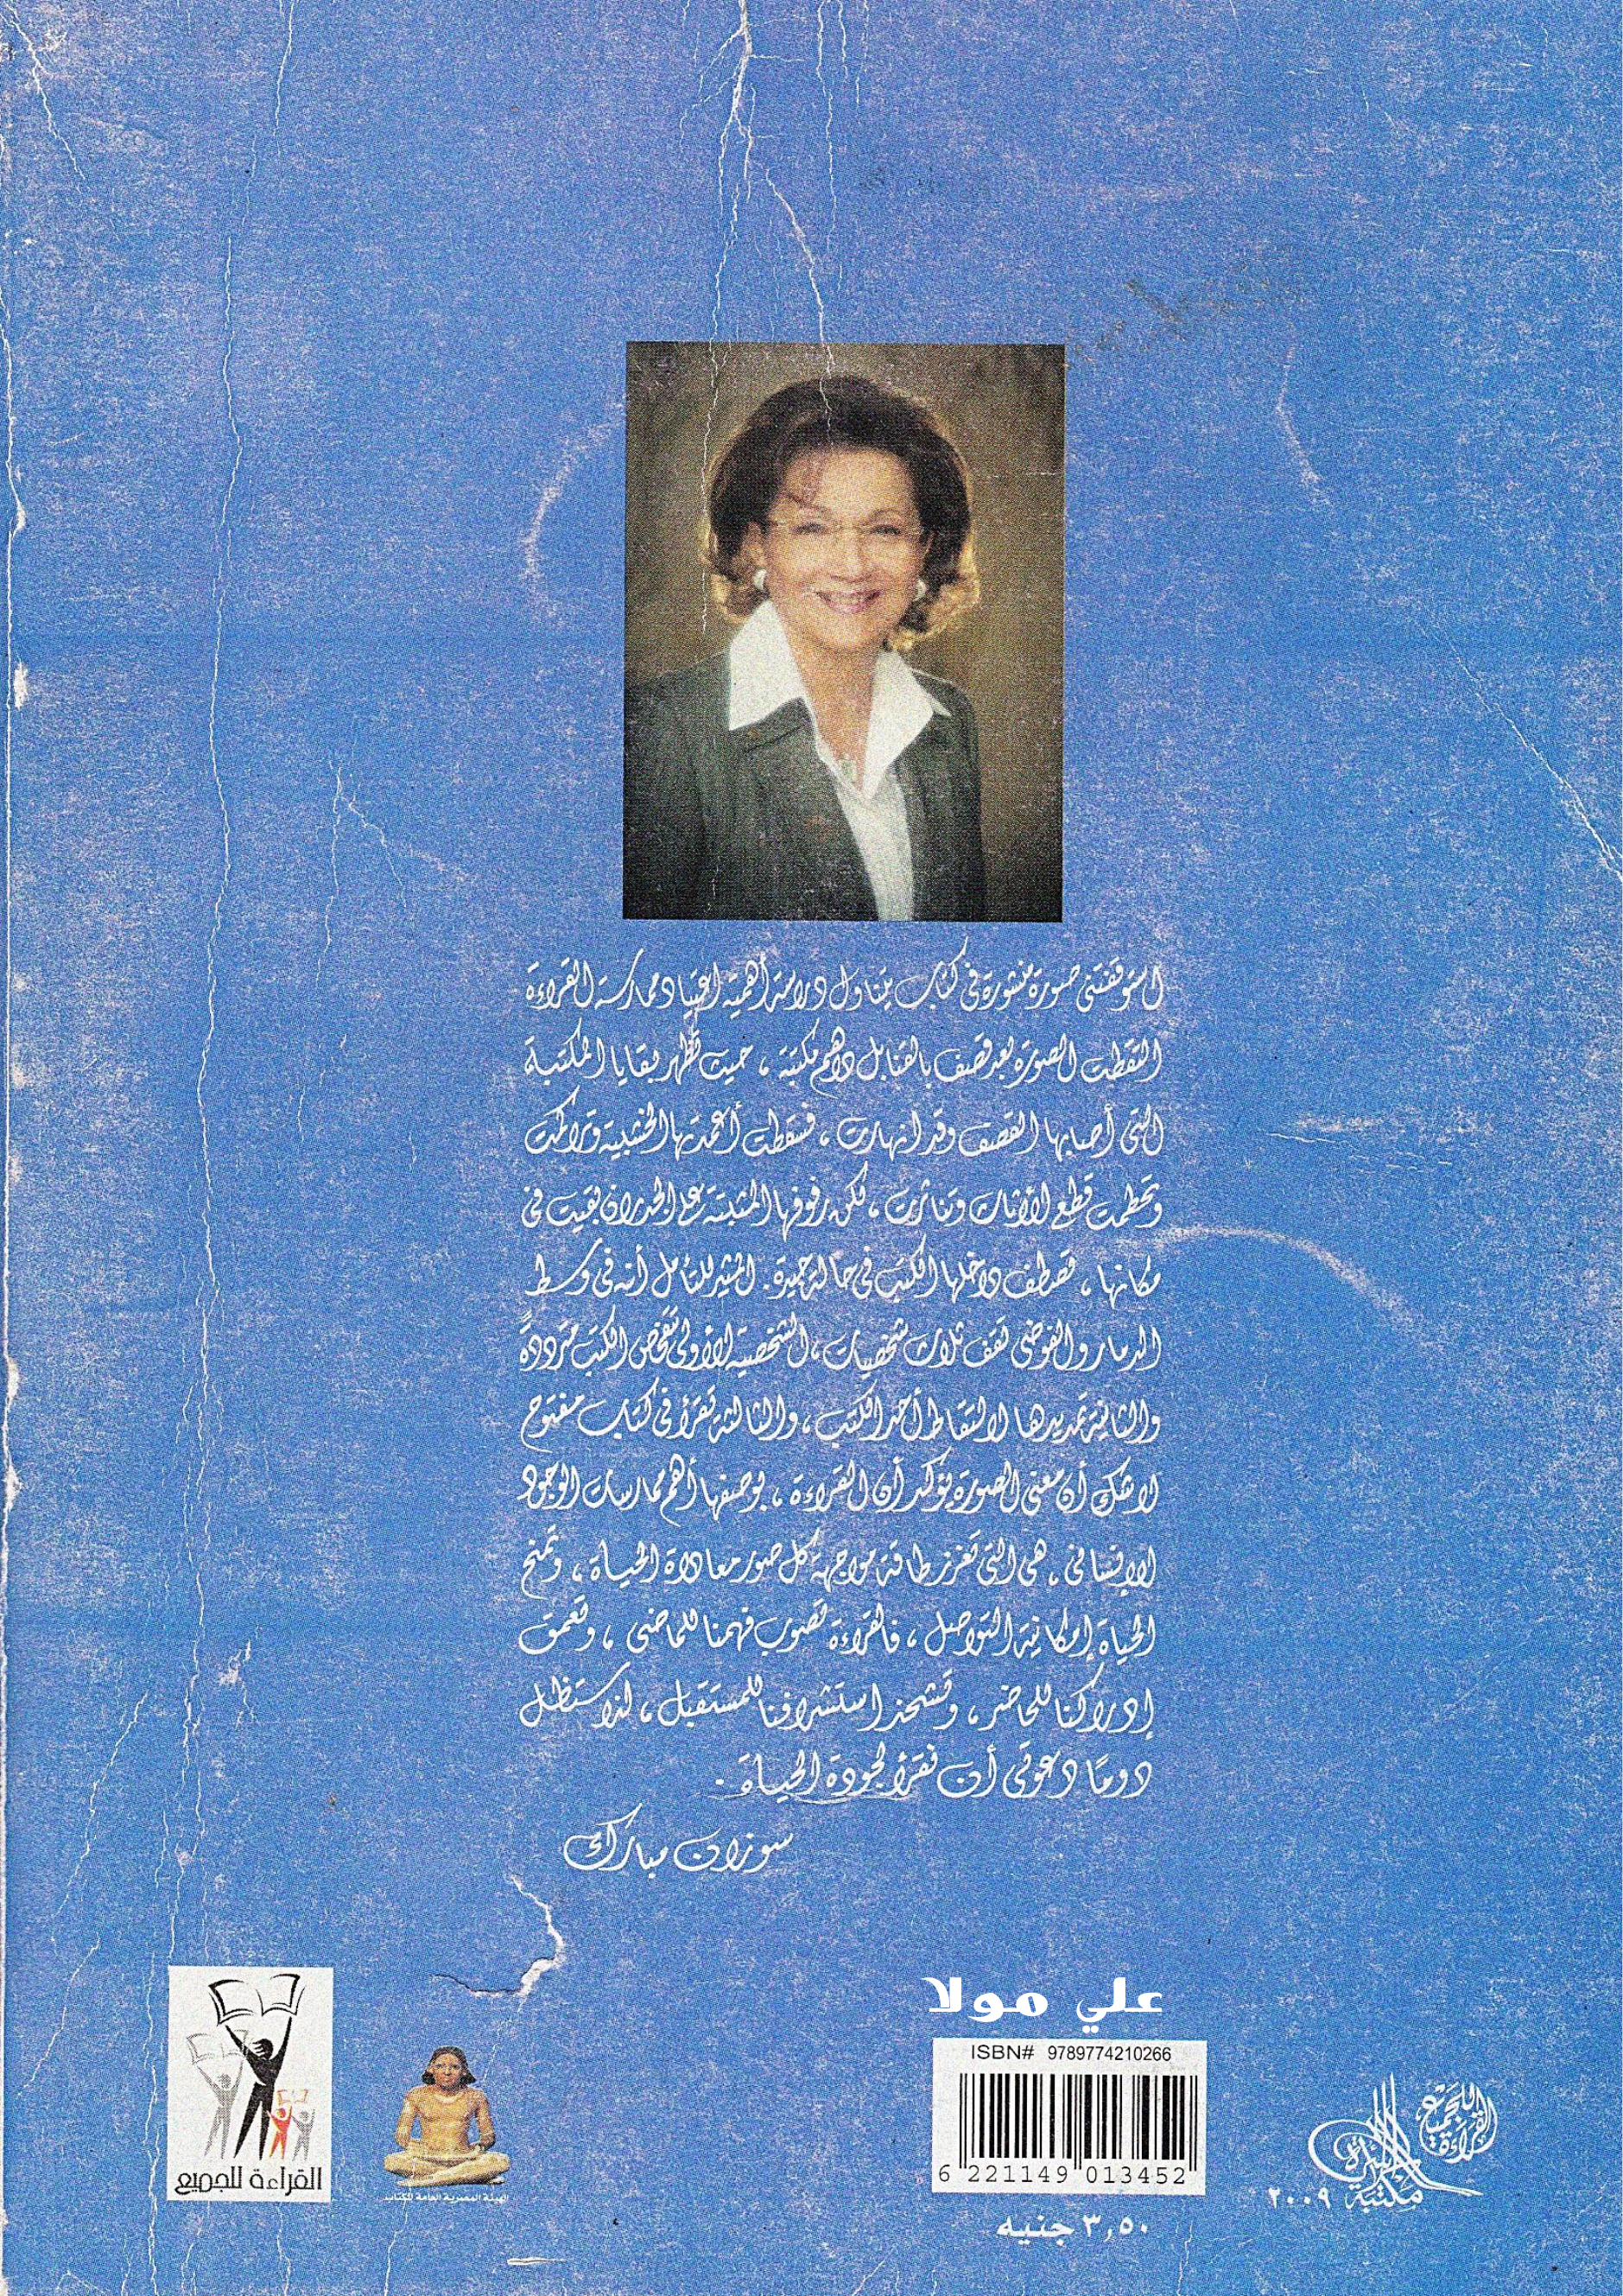 استوقفتنى صورة منشورة فى كتاب يتناول دراسة أهمية اعتياد ممارسة القراءة
التقطت الصورة بعد قصف بالقنابل داهم مكتبة ، حيث تظهر بقايا المكتبة
التى أصابها القصف وقد انهارت ، فسقطت أعمدتها الخشبية وتراكمت
وتحطمت قطع الأثاث وتناثرت ، لكن رفوفها المثبتة على الجدران بقيت فى
مكانها ، تصطف داخلها الكتب فى حالة جيدة. المثير للتأمل أنه فى وسط
الدمار والفوضى تقف ثلاث شخصيات ، الشخصية الأولى تتفحص الكتب مترددةً
والثانية تمد يدها لالتقاط أحد الكتب ، والثالثة تقرأ فى كتاب مفتوح
لاشك أن معنى الصورة يؤكد أن القراءة ، بوصفها أهم ممارسات الوجود
الإنسانى ، هى التى تعزز طاقة مواجهة كل صور معاداة الحياة ، وتمنح
الحياة إمكانية التواصل ، فالقراءة تصوب فهمنا للماضى ، وتعمق
إدراكنا للحاضر ، وتشحذ استشرافنا للمستقبل ، لذا ستظل
دومًا دعوتى أن نقرأ لجودة الحياة .
سوزان مبارك
علي مولا
ISBN# 9789774210266
6 221149 013452
٣,٥٠ جنيه
القراءة للجميع
الهيئة المصرية العامة للكتاب
القراءة للجميع
مكتبة الأسرة
٢٠٠٩